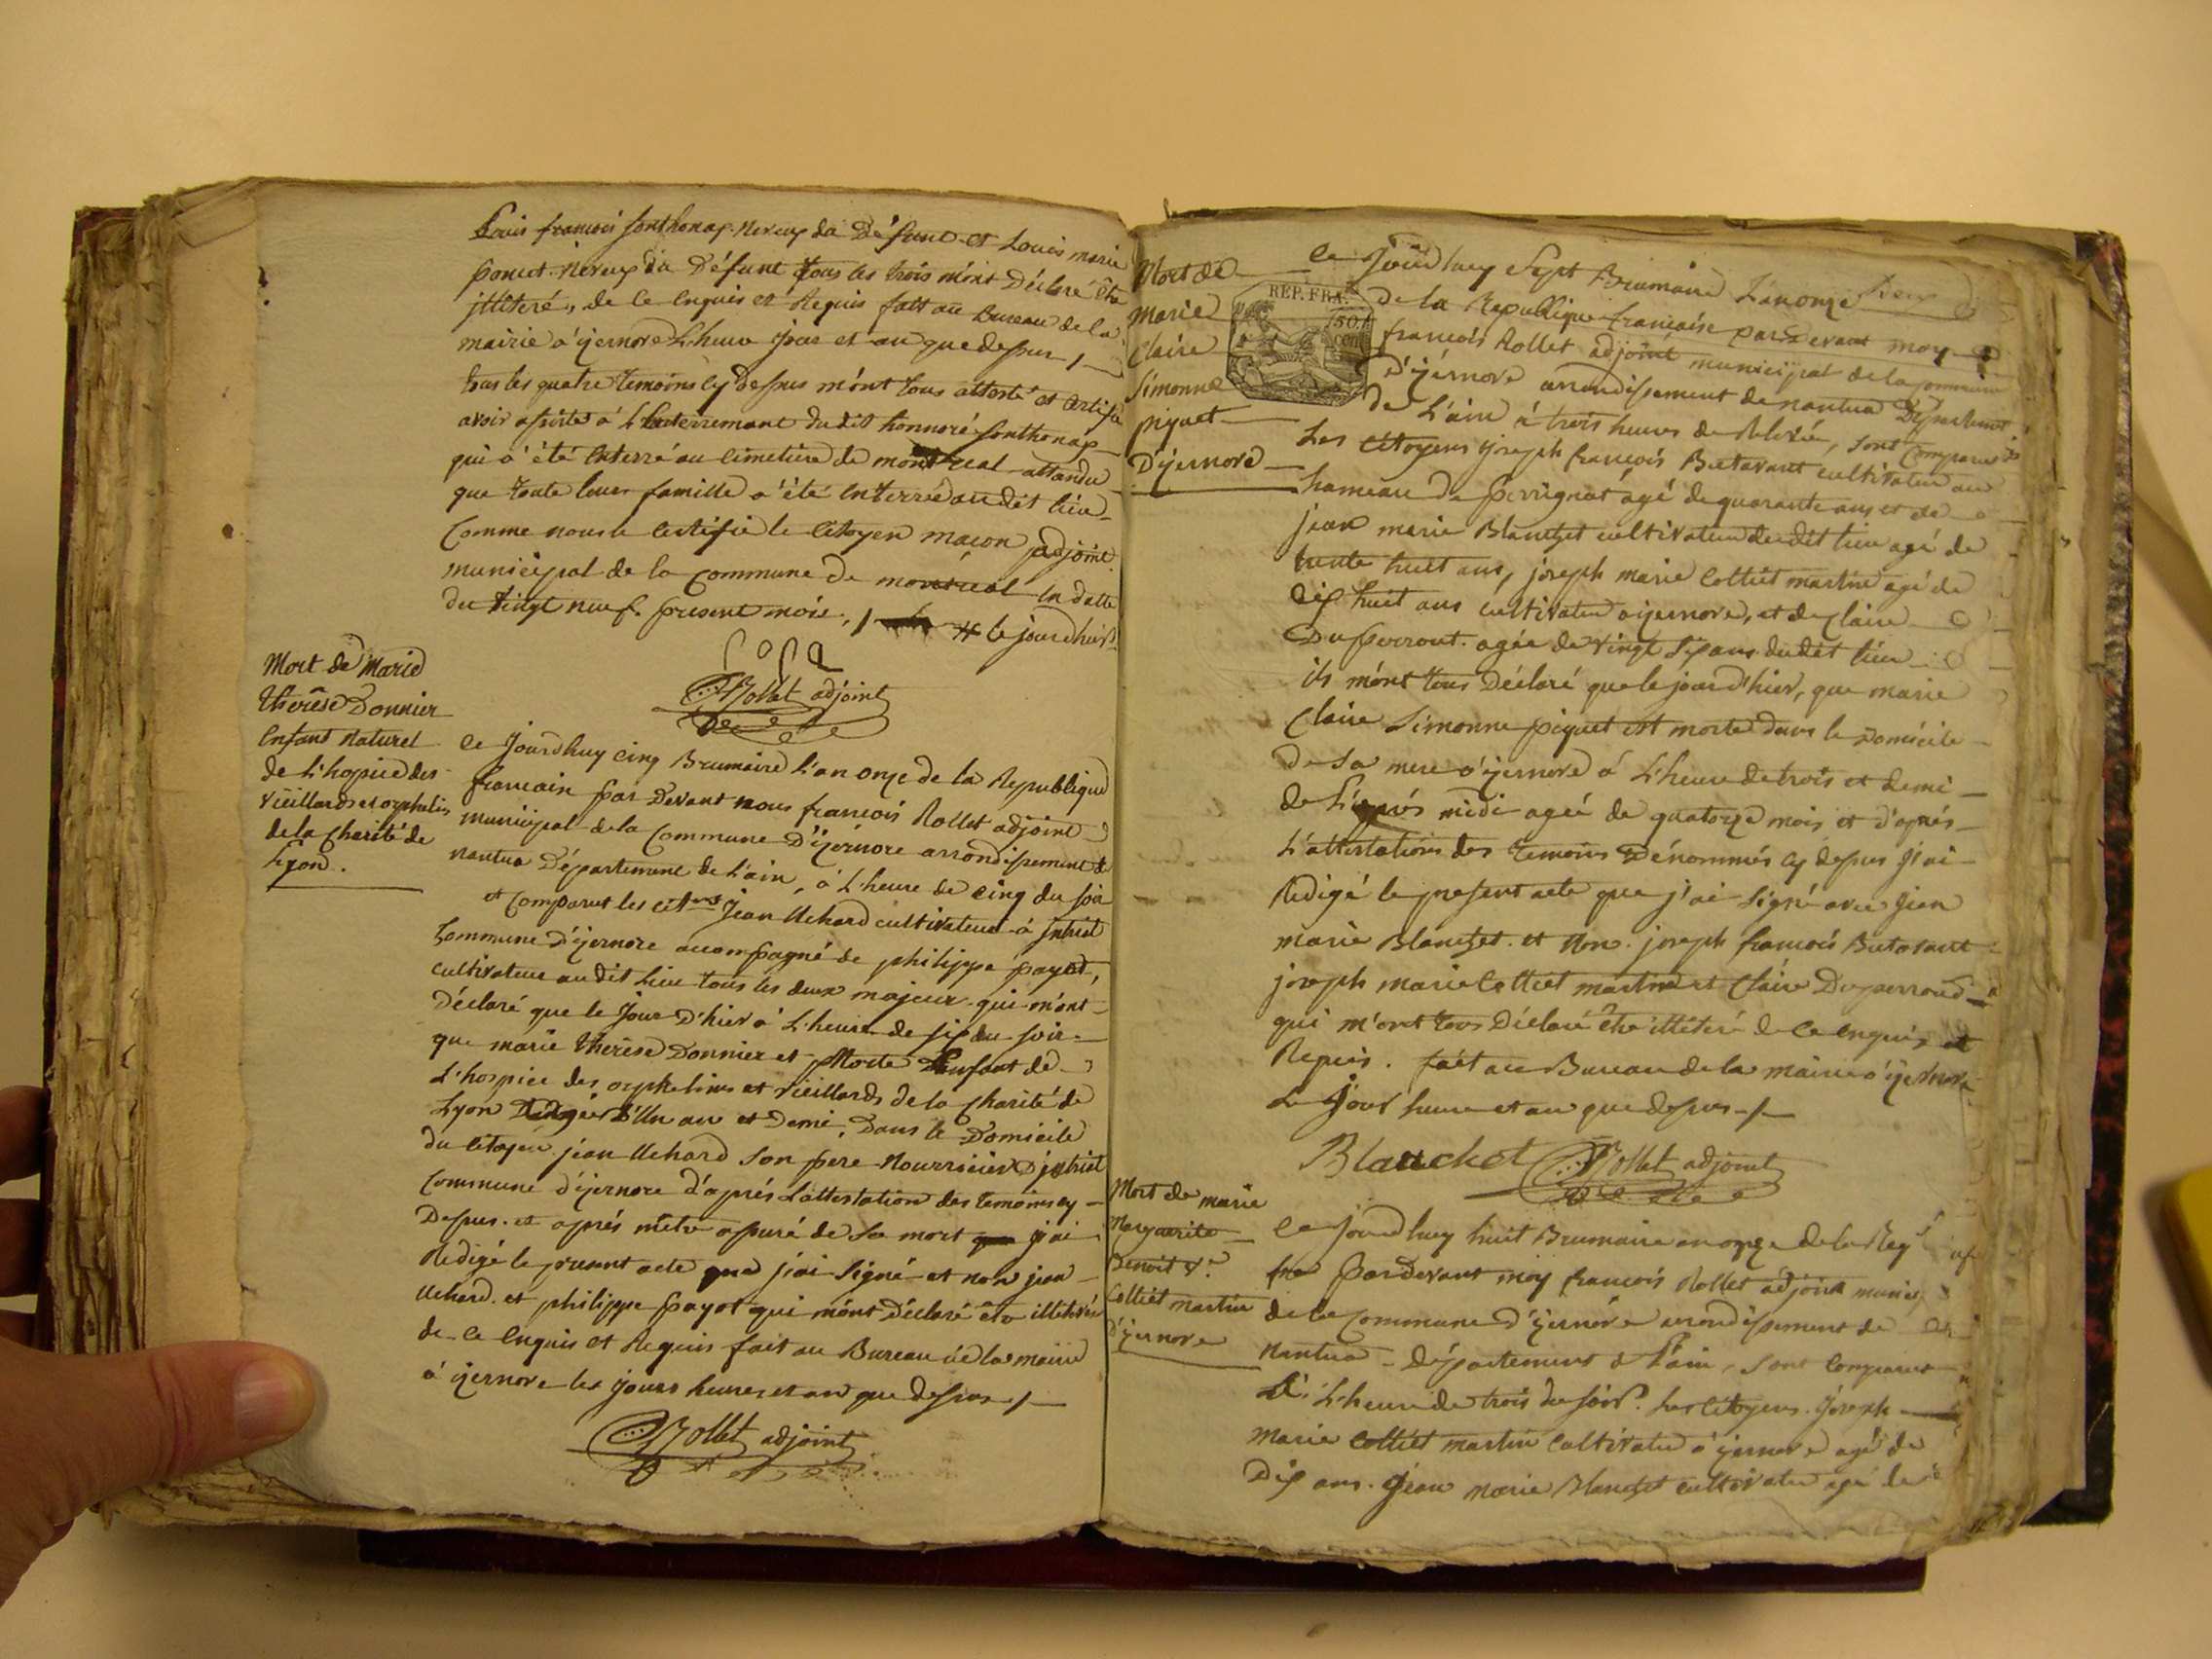 Louis francois sonthonax neveux du Défunt et Louis marie
poncet neveux du Défunt tous les trois m'ont Déclaré être
illiteré, de ce enquis et Requis fait au Bureau de la
mairie d'yernore L'heure jour et an que dessus /
tous les quatre temoins cy dessus m'ont tous attesté et certifié
avoir assisté à L'enterrement du dit honnoré sonthonax
qui a été enterré au cimetière de montreal attandu
que toute leur famille a été enterré audit lieu
Comme nous le certifie le citoyen macon adjoint
municipal de la Commune de montréal en datte
du vingt neuf present mois, / # le jourdhier
Rollet adjoint
Mort de Marie
thérèse Donnier
Enfant Naturel
de L'hospice des
vieillards et orphelins
de la Charité de
Lyon.
Ce Jourdhuy cinq Brumaire l'an onze de la Republique
francaise par Devant nous francois Rollet adjoint
municipal de la Commune D'yernore arrondissement de
nantua Département de L'ain, à L'heure de cinq du soir
et comparut les citens Jean Uchard cultivateur à Intriat
Commune d'yernore accompagné de philippe payot,
cultivateur au dit Lieu tous les deux majeur qui m'ont
Déclaré que le Jour D'hier à L'heure de six du soir
que marie thérèse Donnier est Morte Enfant de
L'hospice des orphelins et vieillards de la Charité de
Lyon Agée D'Un an et Demi, Dans le Domicile
du citoyen jean Uchard Son pere Nourricier à jntriat
Commune d'yernore d'après L'attestation des temoins cy
Dessus et après m'etre assuré de Sa mort j'ai
Redigé le present acte que j'ai Signé et non jean
Uchard et philippe payot qui m'ont Déclaré être illitéré
de ce Enquis et Requis fait au Bureau de la mairie
à yernore les jours heures et an que dessus /
Rollet adjoint
Mort de
marie
Claire
Simonne
piquet
D'yernore
REP. FRA.
50
Ce Jourdhuy Sept Brumaire L'an onze
de la Republique francaise pardevant moy
francois Rollet adjoint municipal de la commune
d'yernore arrondissement de nantua Departement
de L'ain à trois heures de Relevée, sont comparus
Les citoyens joseph francois Butavant cultivateur au
hameau de perrignat agé de quarante ans et de
jean marie Blanchet cultivateur dudit lieu agé de
trente huit ans, joseph marie Colliet martin agé de
dix huit ans cultivateur à yernore, et de Claire
Duperrout agée de vingt six ans dudit lieu
ils m'ont tous Déclaré que le jourd'hier, que marie
Claire Simonne piquet est morte dans le Domicile
de Sa mere à yernore à L'heure de trois et demi
de L'après midi agée de quatorze mois et d'après
L'attestations des temoins Dénommés cy dessus j'ai
Redigé le present acte que j'ai Signé avec jean
marie Blanchet et Non joseph francois Butavant
joseph marie Colliet martin et Claire Duperroud
qui m'ont tous Déclaré être illitéré de ce enquis et
Requis. fait au Bureau de la mairie d'yernore
Le Jour heure et an que dessus /
Blanchet Rollet adjoint
Mort de marie
Marguerite
Benoit Ve
Colliet Martin
d'yernore
Ce jourdhuy huit Brumaire an onze de la Rep
fre Pardevant moy francois Rollet adjoint munici
de la commune D'yernore arrondissement de
Nantua Département de L'ain, sont comparut
à L'heure de trois du soir Les Citoyens joseph
Marie Colliet martin Cultivateur à yernore agé de
Dix ans. jean Marie Blanchet cultivateur agé de